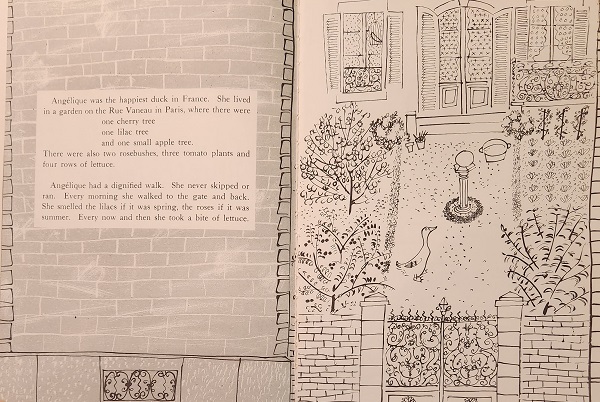 Angélique was the happiest duck in France. She lived
in a garden on the Rue Vaneau in Paris, where there were
one cherry tree
one lilac tree
and one small apple tree.
There were also two rosebushes, three tomato plants and
four rows of lettuce.
Angélique had a dignified walk. She never skipped or
ran. Every morning she walked to the gate and back.
She smelled the lilacs if it was spring, the roses if it was
summer. Every now and then she took a bite of lettuce.